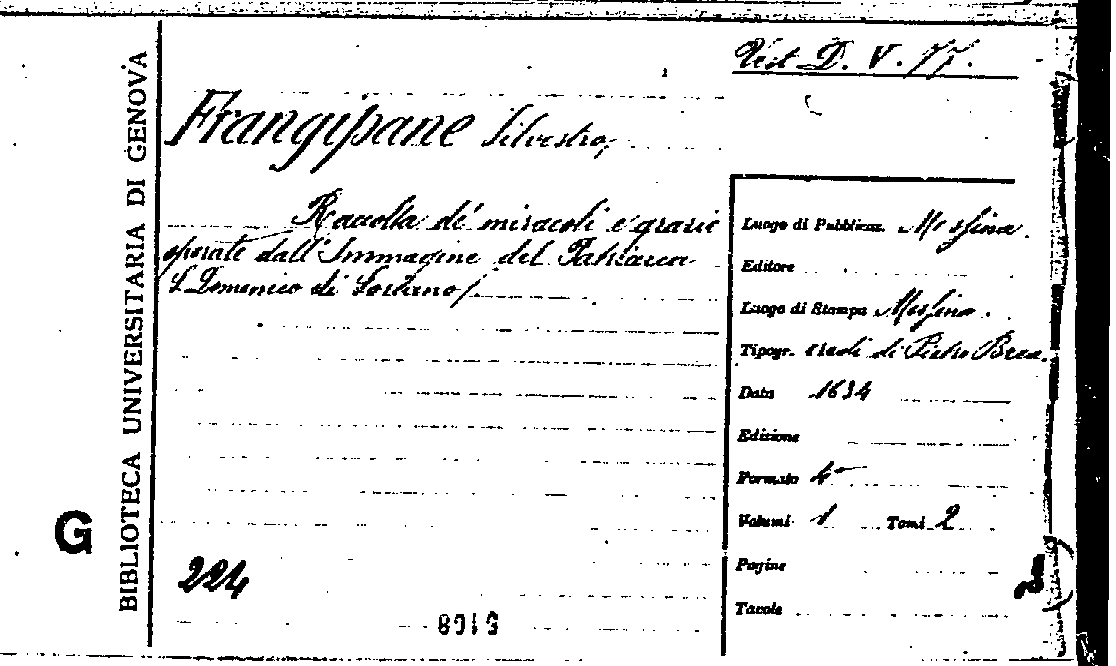 Vest D. V. 17.
Frangipane Silvestro,
Raccolta de' miracoli e grazie
operate dall'Immagine del Patriarca
S. Domenico di Soriano/
Luogo di Pubblicaz. Messina.
Editore
Luogo di Stampa Messina.
Tipogr. eredi di Pietro Brea.
Data 1634
Edizione
Formato 4°
Volumi 1 Tomi 2
Pagine
Tavole
224
BIBLIOTECA UNIVERSITARIA DI GENOVA
G